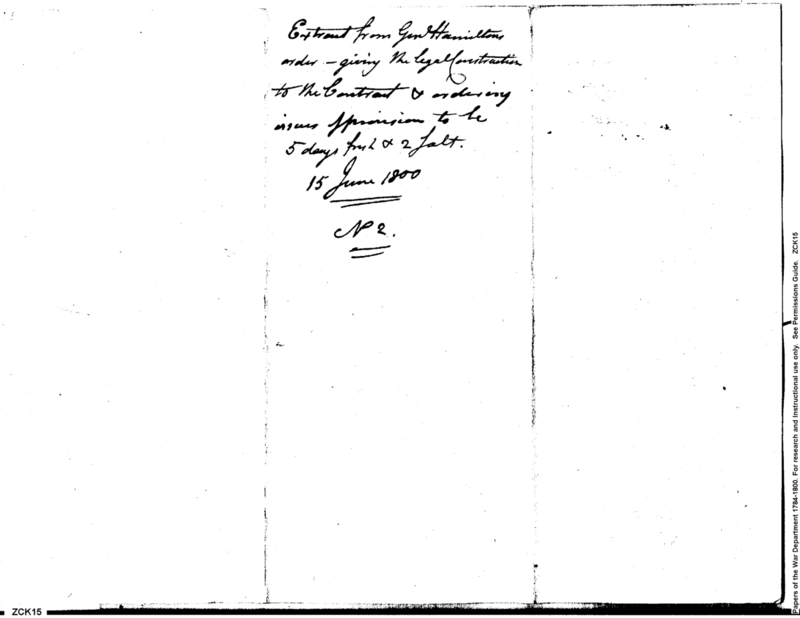 Extract from Genl Hamiltons
order – giving the legal Construction
to the Contract & ordering
issues of provision to be
5 days fresh & 2 Salt.
15 June 1800
No 2.
ZCK15
Papers of the War Department 1784-1800. For research and instructional use only. See Permissions Guide. ZCK15